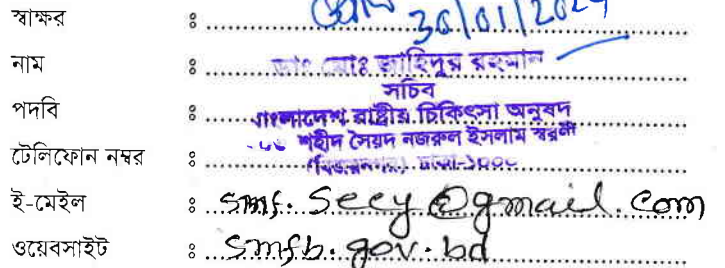 স্বাক্ষর ঃ 30/01/2024
নাম ঃ ডাঃ মোঃ জাহিদুর রহমান
সচিব
পদবি ঃ বাংলাদেশ রাষ্ট্রীয় চিকিৎসা অনুষদ
শহীদ সৈয়দ নজরুল ইসলাম স্বরণী
টেলিফোন নম্বর ঃ
ই-মেইল ঃ smf.secy@gmail.com
ওয়েবসাইট ঃ smfb.gov.bd